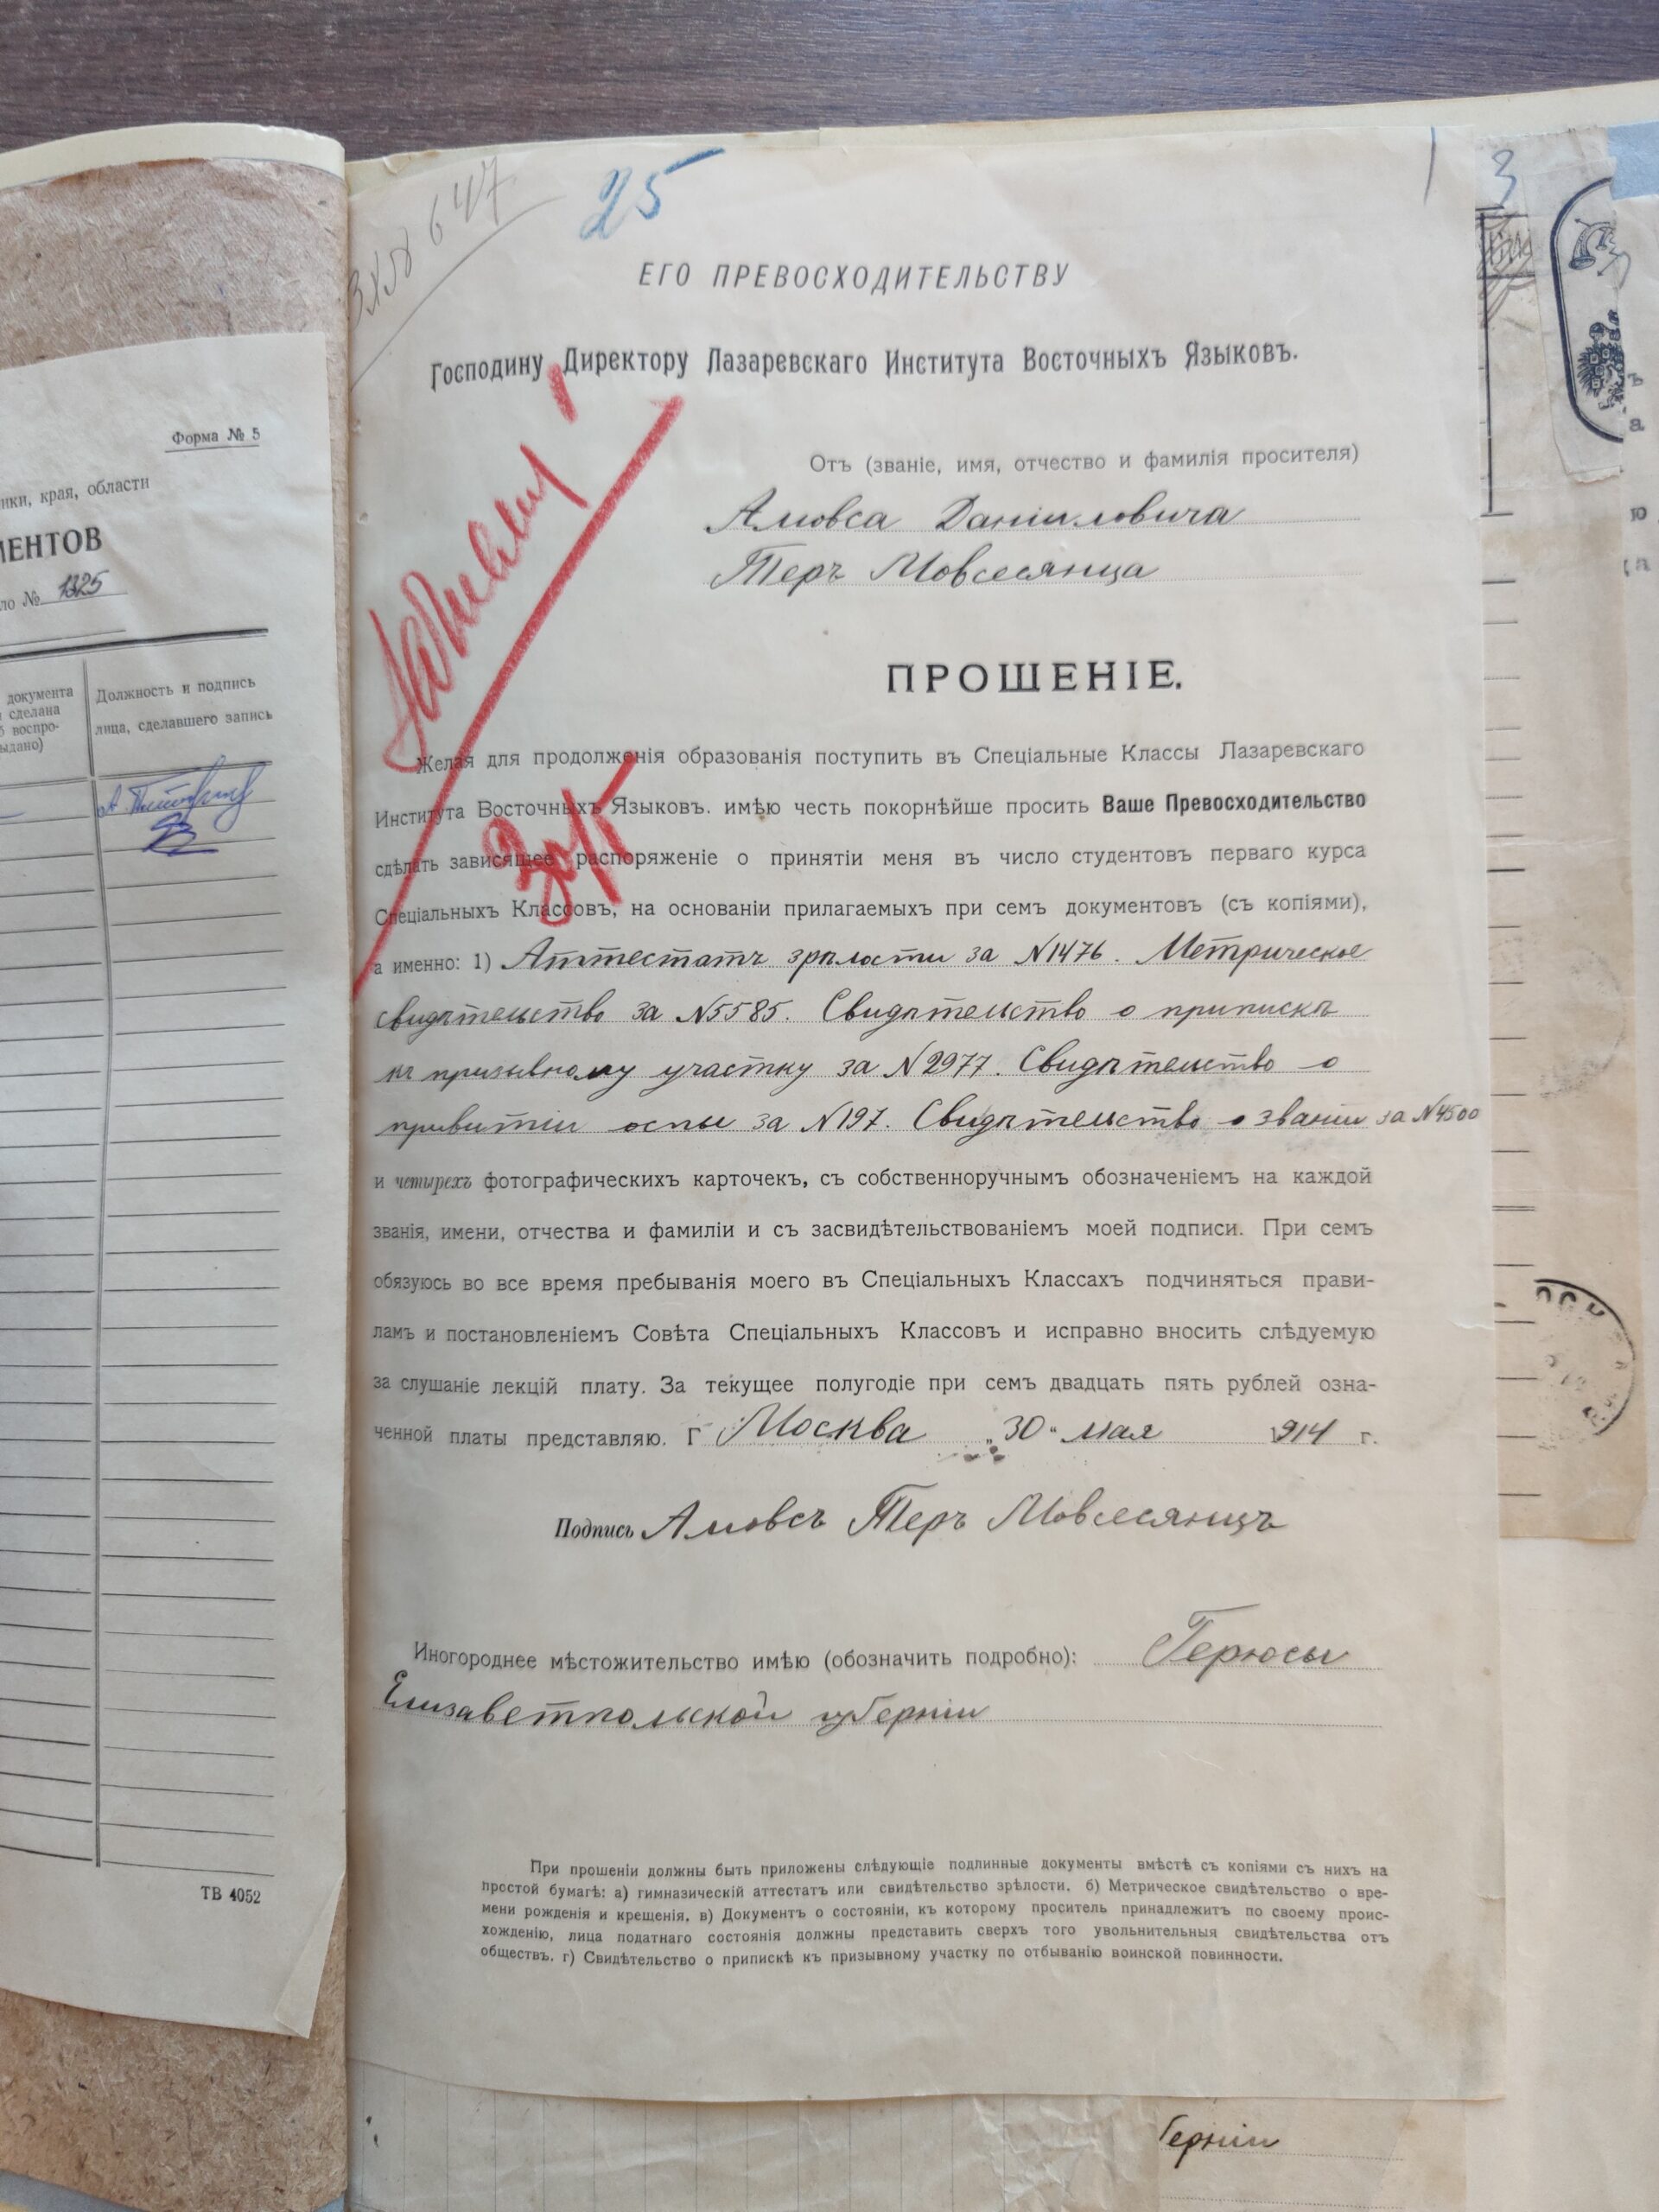 Форма № 5
ики, края, области
МЕНТОВ
ло № 1325
документа
сделана
воспро-
ыдано)
Должность и подпись
лица, сделавшего запись
ТВ 4052
647
25
1
3
ЕГО ПРЕВОСХОДИТЕЛЬСТВУ
Господину Директору Лазаревскаго Института Восточныхъ Языковъ.
Отъ (званіе, имя, отчество и фамилія просителя)
Амовса Даніиловича
Теръ Мовсесянца
ПРОШЕНІЕ.
Желая для продолженія образованія поступить въ Спеціальные Классы Лазаревскаго
Института Восточныхъ Языковъ. имѣю честь покорнѣйше просить Ваше Превосходительство
сдѣлать зависящее распоряженіе о принятіи меня въ число студентовъ перваго курса
Спеціальныхъ Классовъ, на основаніи прилагаемыхъ при семъ документовъ (съ копіями),
а именно: 1) Аттестатъ зрѣлости за №1476. Метрическое
свидѣтельство за №5585. Свидѣтельство о припискѣ
къ призывному участку за №2977. Свидѣтельство о
привитіи оспы за №197. Свидѣтельство о званіи за №4500
и четырехъ фотографическихъ карточекъ, съ собственноручнымъ обозначеніемъ на каждой
званія, имени, отчества и фамиліи и съ засвидѣтельствованіемъ моей подписи. При семъ
обязуюсь во все время пребыванія моего въ Спеціальныхъ Классахъ подчиняться прави-
ламъ и постановленіемъ Совѣта Спеціальныхъ Классовъ и исправно вносить слѣдуемую
за слушаніе лекцій плату. За текущее полугодіе при семъ двадцать пять рублей озна-
ченной платы представляю. Г Москва „30“ мая 1914 г.
Подпись Амовсъ Теръ Мовсесянцъ
Иногороднее мѣстожительство имѣю (обозначить подробно): Герюсы
Елизаветпольской губерніи
При прошеніи должны быть приложены слѣдующіе подлинные документы вмѣстѣ съ копіями съ нихъ на
простой бумагѣ: а) гимназическій аттестатъ или свидѣтельство зрѣлости. б) Метрическое свидѣтельство о вре-
мени рожденія и крещенія. в) Документъ о состояніи, къ которому проситель принадлежитъ по своему проис-
хожденію, лица податнаго состоянія должны представить сверхъ того увольнительныя свидѣтельства отъ
обществъ. г) Свидѣтельство о припискѣ къ призывному участку по отбыванію воинской повинности.
берніи